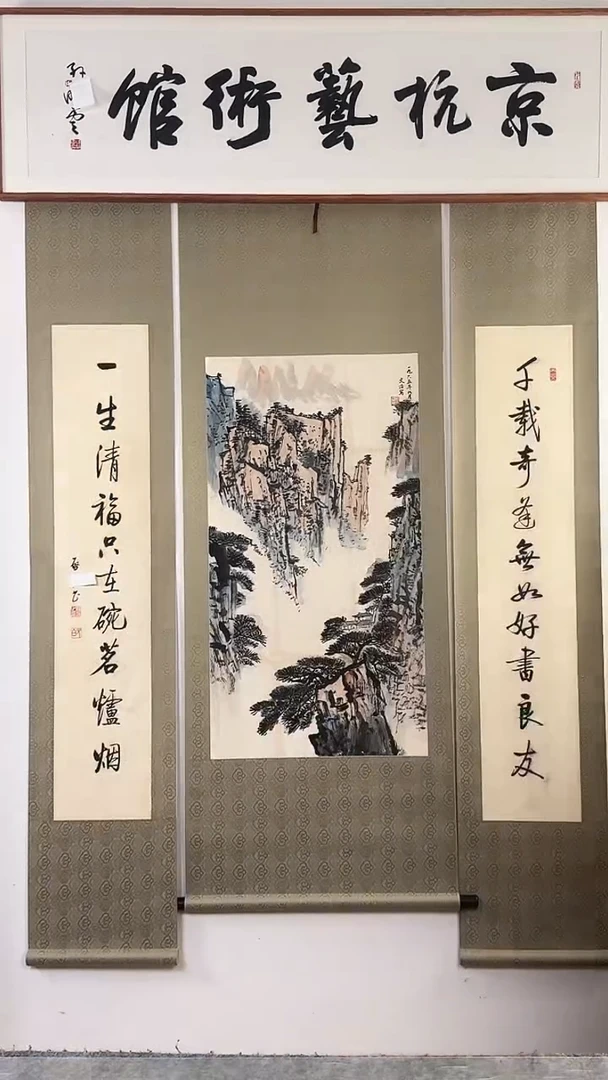 京杭藝術館
千載奇逢無如好書良友
一九六五年
一生清福只在碗茗爐烟